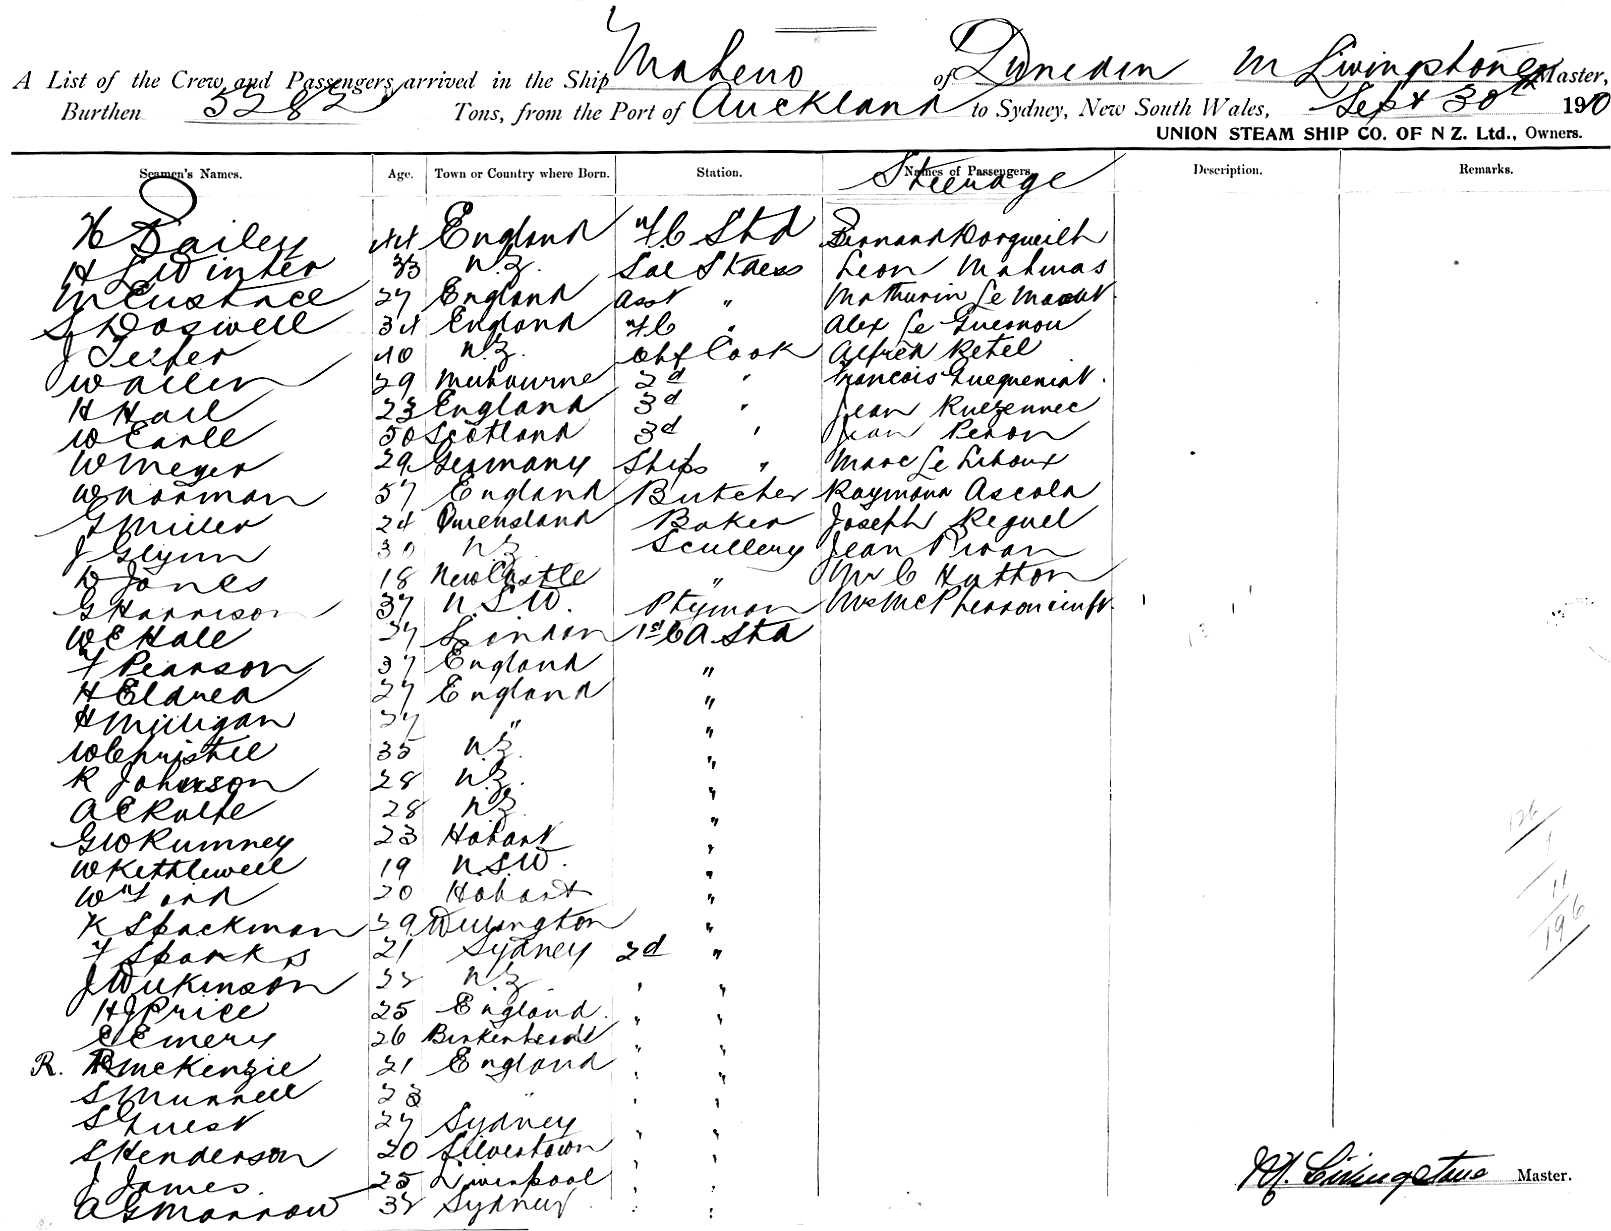 A List of the Crew and Passengers arrived in the Ship Maheno of Dunedin M Livingstone Master,
Burthen 5282 Tons, from the Port of Auckland to Sydney, New South Wales, Sept 30th 1910
UNION STEAM SHIP CO. OF N Z. Ltd., Owners.
Seamen's Names. Age. Town or Country where Born. Station. Names of Passengers Description. Remarks.
Steerage
H Bailey 44 England F.C Std
H S Winter 33 N.Z. Sal Stdess Leon Mahmas
M Eustace 27 England Asst " Mathurin Le
S Doswell 34 England F C " Alex Le Guernou
J Teifer 40 N.Z. Chf Cook Alfred Retel
W 29 Melbourne 2d " Francois
H Hall 23 England 3d " Jean Ruezennec
W Earle 50 Scotland 3d " Jean Peron
W Meyer 29 Germany Ships " Marc Le
W Norman 57 England Butcher Raymond Ascola
G Miller 24 Queensland Baker Joseph Reguel
J Glynn 30 N.Z. Scullery Jean Rioan
D Jones 18 NewCastle " Mr C Hutton
G Harrison 37 N.S.W. Ptyman Mrs McPherson inft.
W E Hall 37 London 1st C A Std
F Pearson 37 England "
H Eldred 27 England "
H Milligan 27 " "
W Christie 35 N.Z. "
R Johnson 28 N.Z. "
A E Rolfe 28 N.Z. "
G W Rumney 23 Hobart "
W Kethlewell 19 N.S.W. "
W Ford 20 Hobart "
K Spackman 29 Wellington "
F Sparks 21 Sydney 2d "
J Wilkinson 22 N.Z. " "
H J Price 25 England. " "
E Emery 26 Birkenhead " "
R. McKenzie 21 England " "
S Murrell 23 " " "
S Guest 27 Sydney " "
S Henderson 20 Silvertown " "
J James. 25 Liverpool " "
A G Morrow 32 Sydney " "
M. Livingstone Master.
126
1
11
196